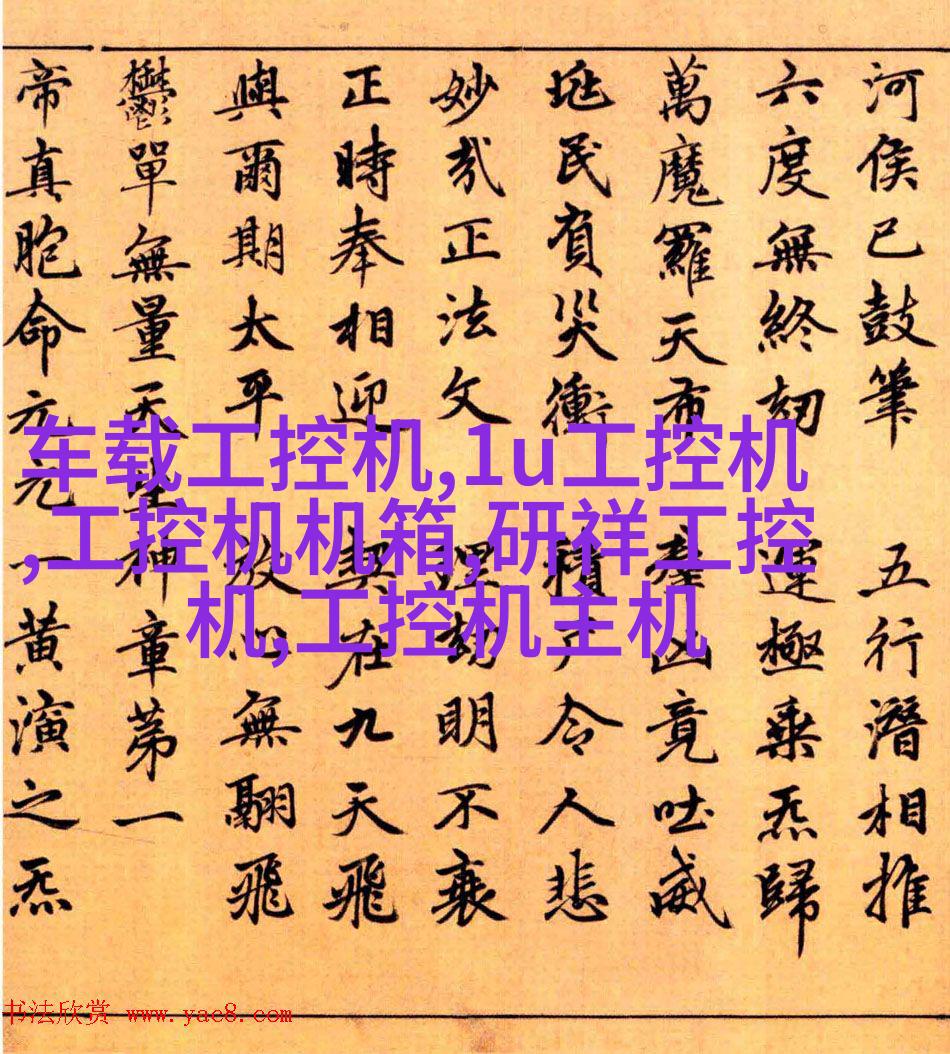 河侯已鼓筆 五行潛相推
六度無終劫 運極乘炁歸
萬魔羅天布 凶竟吐威
民負災衝 積尸令人悲
妙哉正法文 理劫明不衰
正時奉相迎 契在九天飛
與爾期太平 放心無翮飛
鬱單無量天生神章第一
帝真胞命元元一黃演之炁
车载工控机,1u工控机
,工控机机箱,研祥工控
机,工控机主机
书法欣赏 www.yac8.com